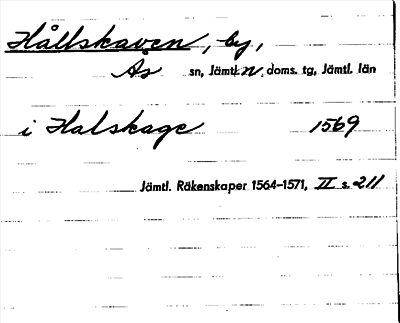 Hållskaven, by,
Ås sn, Jämtl. n. doms. tg, Jämtl. län
i Halskage 1569
Jämtl. Räkenskaper 1564–1571, II s. 211